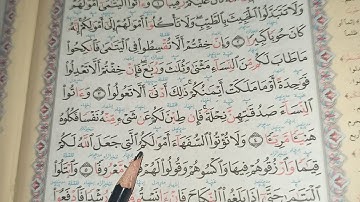 كَانَ عَلَيْكُمْ رَقِيبًا ١ وَءَاتُوا۟ ٱلْيَتَـٰمَىٰٓ أَمْوَٰلَهُمْ
وَلَا تَتَبَدَّلُوا۟ ٱلْخَبِيثَ بِٱلطَّيِّبِ وَلَا تَأْكُلُوٓا۟ أَمْوَٰلَهُمْ إِلَىٰٓ أَمْوَٰلِكُمْ إِنَّهُۥ
كَانَ حُوبًا كَبِيرًا ٢ وَإِنْ خِفْتُمْ أَلَّا تُقْسِطُوا۟ فِى ٱلْيَتَـٰمَىٰ فَٱنكِحُوا۟
مَا طَابَ لَكُم مِّنَ ٱلنِّسَآءِ مَثْنَىٰ وَثُلَـٰثَ وَرُبَـٰعَ فَإِنْ خِفْتُمْ أَلَّا تَعْدِلُوا۟
فَوَٰحِدَةً أَوْ مَا مَلَكَتْ أَيْمَـٰنُكُمْ ذَٰلِكَ أَدْنَىٰٓ أَلَّا تَعُولُوا۟ ٣ وَءَاتُوا۟
ٱلنِّسَآءَ صَدُقَـٰتِهِنَّ نِحْلَةً فَإِن طِبْنَ لَكُمْ عَن شَىْءٍ مِّنْهُ نَفْسًا فَكُلُوهُ
هَنِيٓـًٔا مَّرِيٓـًٔا ٤ وَلَا تُؤْتُوا۟ ٱلسُّفَهَآءَ أَمْوَٰلَكُمُ ٱلَّتِى جَعَلَ ٱللَّهُ لَكُمْ
قِيَـٰمًا وَٱرْزُقُوهُمْ فِيهَا وَٱكْسُوهُمْ وَقُولُوا۟ لَهُمْ قَوْلًا مَّعْرُوفًا ٥ وَٱبْتَلُوا۟
ٱلْيَتَـٰمَىٰ حَتَّىٰٓ إِذَا بَلَغُوا۟ ٱلنِّكَاحَ فَإِنْ ءَانَسْتُم مِّنْهُمْ رُشْدًا فَٱدْفَعُوٓا۟